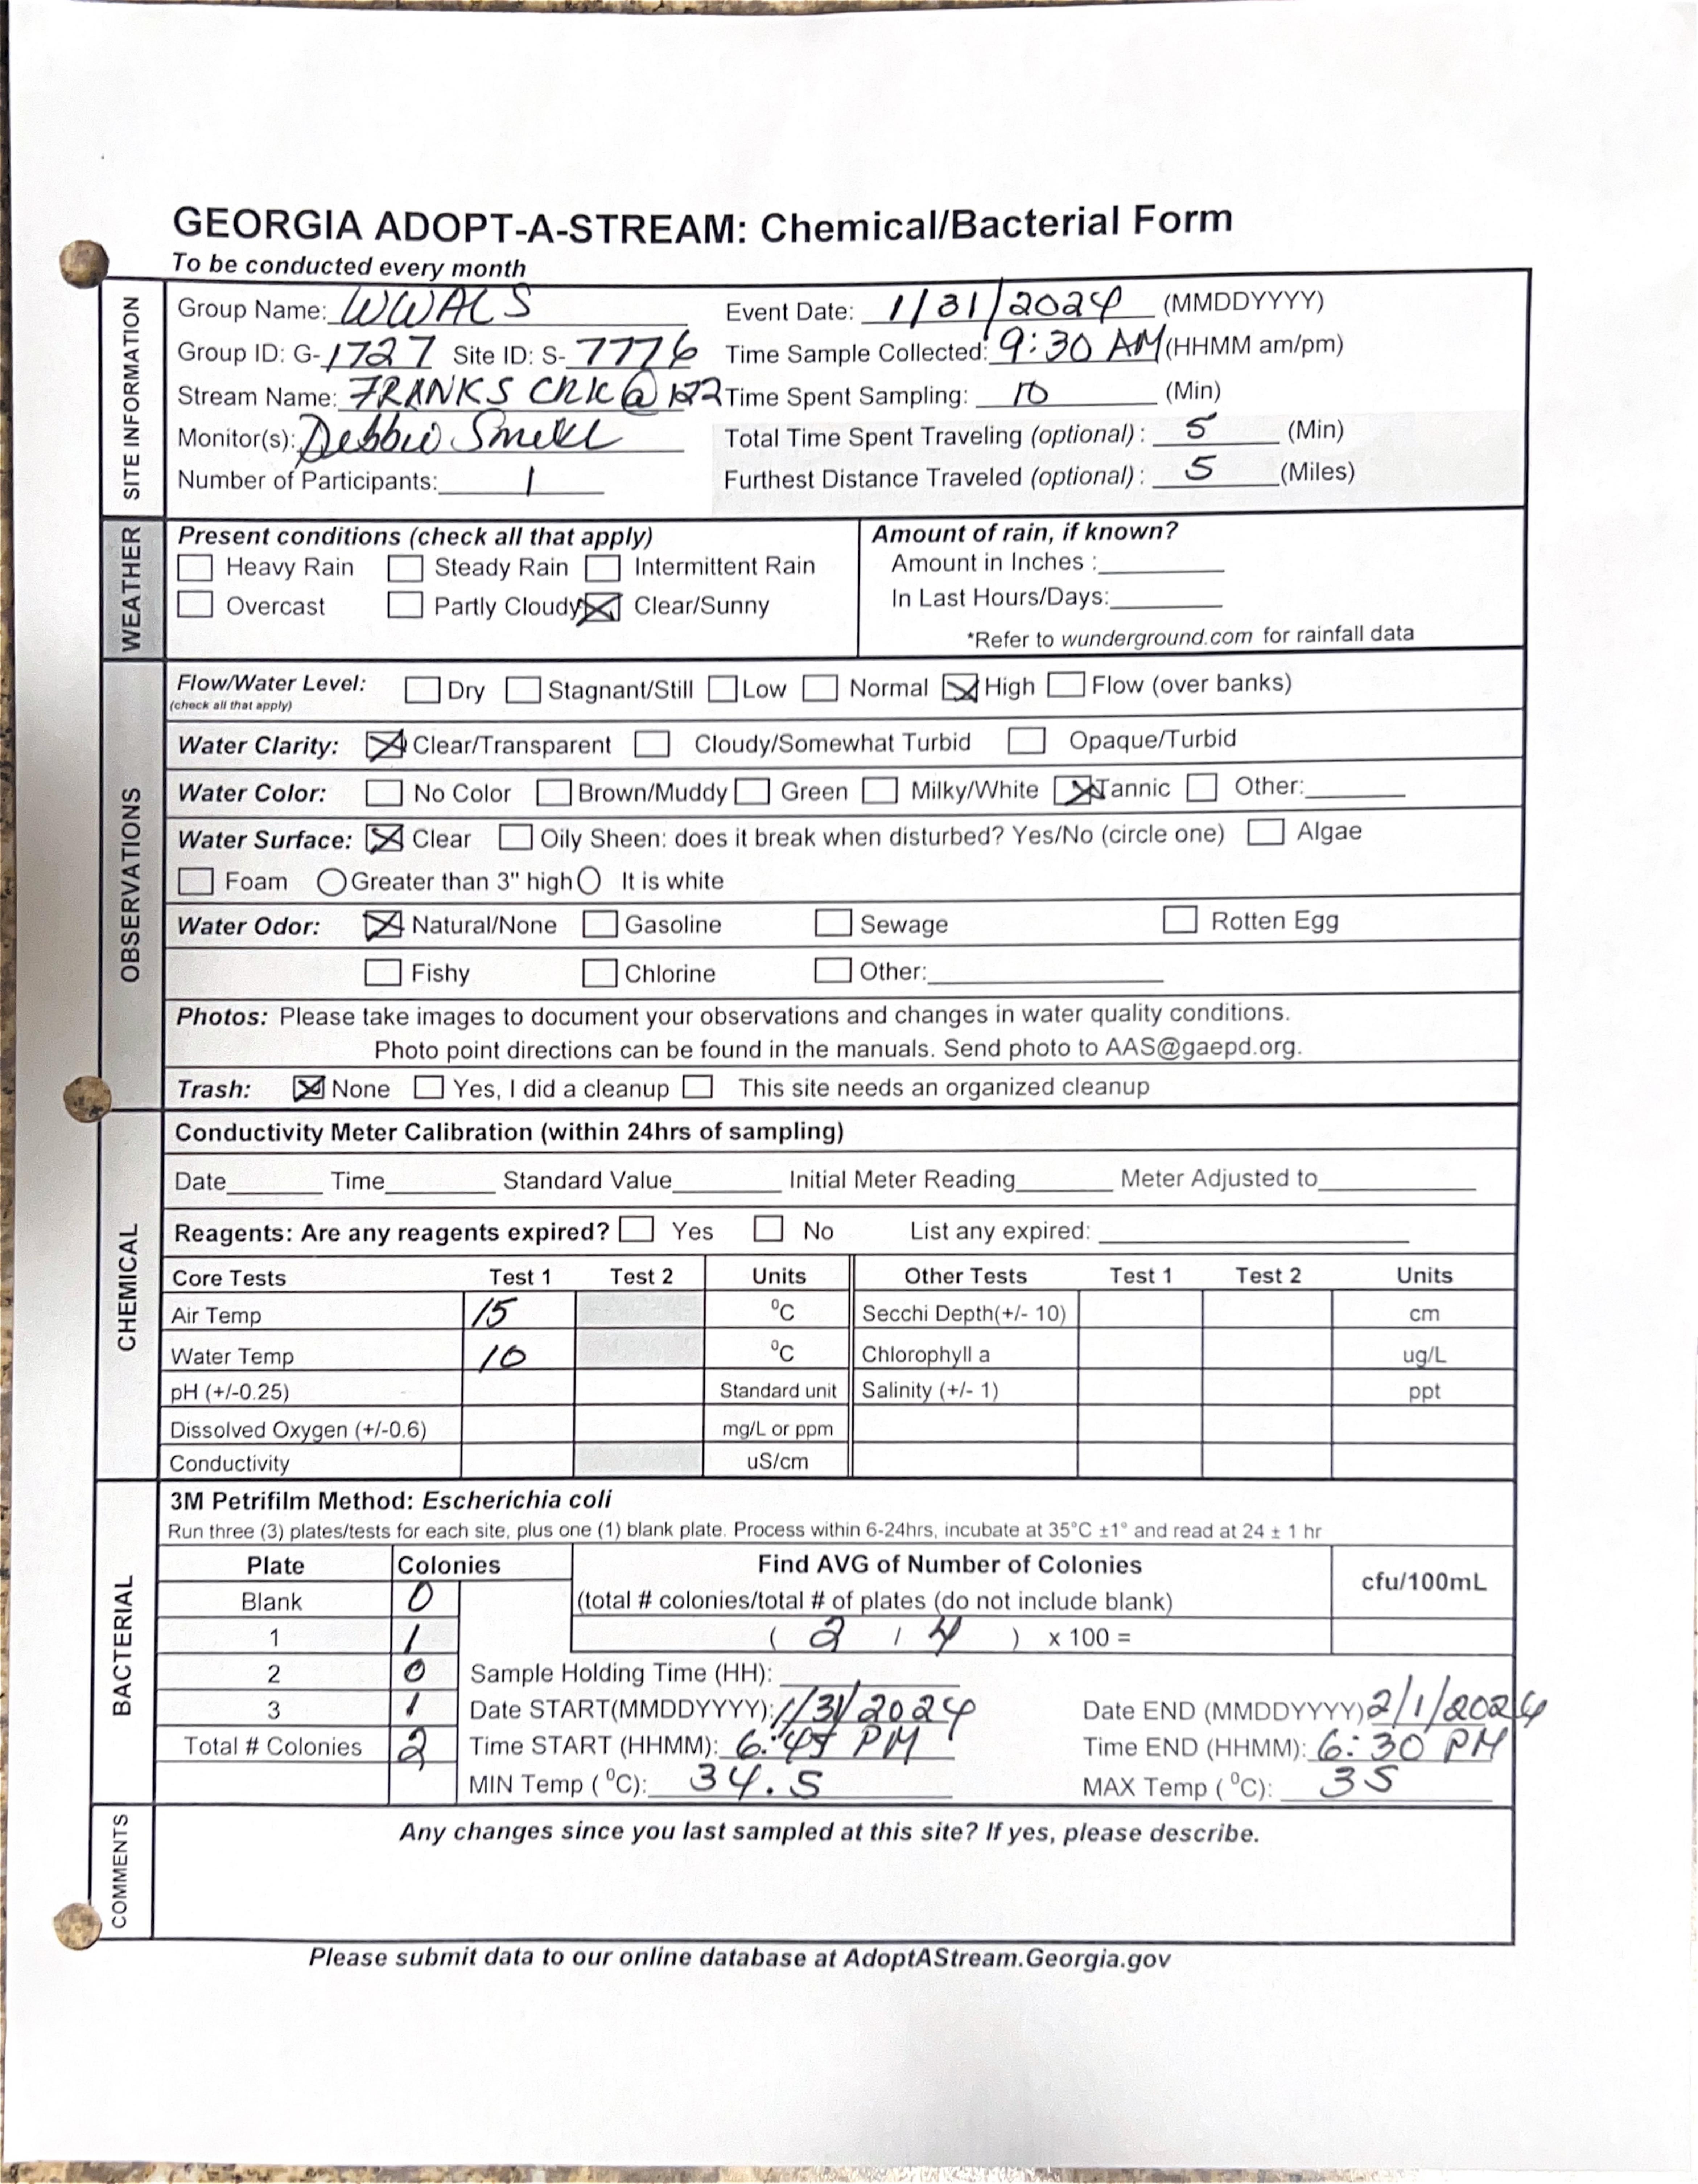 GEORGIA ADOPT-A-STREAM: Chemical/Bacterial Form
To be conducted every month
SITE INFORMATION
Group Name: WWALS Event Date: 1/31/2024 (MMDDYYYY)
Group ID: G-1727 Site ID: S-7776 Time Sample Collected: 9:30 AM (HHMM am/pm)
Stream Name: FRANKS CRK @ 122 Time Spent Sampling: 10 (Min)
Monitor(s): Debbie Smith Total Time Spent Traveling (optional): 5 (Min)
Number of Participants: 1 Furthest Distance Traveled (optional): 5 (Miles)
WEATHER
Present conditions (check all that apply) Amount of rain, if known?
Heavy Rain Steady Rain Intermittent Rain Amount in Inches :
Overcast Partly Cloudy Clear/Sunny In Last Hours/Days:
*Refer to wunderground.com for rainfall data
OBSERVATIONS
Flow/Water Level: Dry Stagnant/Still Low Normal High Flow (over banks)
(check all that apply)
Water Clarity: Clear/Transparent Cloudy/Somewhat Turbid Opaque/Turbid
Water Color: No Color Brown/Muddy Green Milky/White Tannic Other:
Water Surface: Clear Oily Sheen: does it break when disturbed? Yes/No (circle one) Algae
Foam Greater than 3" high It is white
Water Odor: Natural/None Gasoline Sewage Rotten Egg
Fishy Chlorine Other:
Photos: Please take images to document your observations and changes in water quality conditions.
Photo point directions can be found in the manuals. Send photo to AAS@gaepd.org.
Trash: None Yes, I did a cleanup This site needs an organized cleanup
CHEMICAL
Conductivity Meter Calibration (within 24hrs of sampling)
Date Time Standard Value Initial Meter Reading Meter Adjusted to
Reagents: Are any reagents expired? Yes No List any expired:
Core Tests Test 1 Test 2 Units Other Tests Test 1 Test 2 Units
Air Temp 15 °C Secchi Depth(+/- 10) cm
Water Temp 10 °C Chlorophyll a ug/L
pH (+/-0.25) Standard unit Salinity (+/- 1) ppt
Dissolved Oxygen (+/-0.6) mg/L or ppm
Conductivity uS/cm
BACTERIAL
3M Petrifilm Method: Escherichia coli
Run three (3) plates/tests for each site, plus one (1) blank plate. Process within 6-24hrs, incubate at 35°C ±1° and read at 24 ± 1 hr
Plate Colonies Find AVG of Number of Colonies cfu/100mL
Blank 0 (total # colonies/total # of plates (do not include blank)
1 1 ( 2 / 4 ) x 100 =
2 0 Sample Holding Time (HH):
3 1 Date START(MMDDYYYY): 1/31/2024 Date END (MMDDYYYY) 2/1/2024
Total # Colonies 2 Time START (HHMM): 6:45 PM Time END (HHMM): 6:30 PM
MIN Temp (°C): 34.5 MAX Temp (°C): 35
COMMENTS
Any changes since you last sampled at this site? If yes, please describe.
Please submit data to our online database at AdoptAStream.Georgia.gov